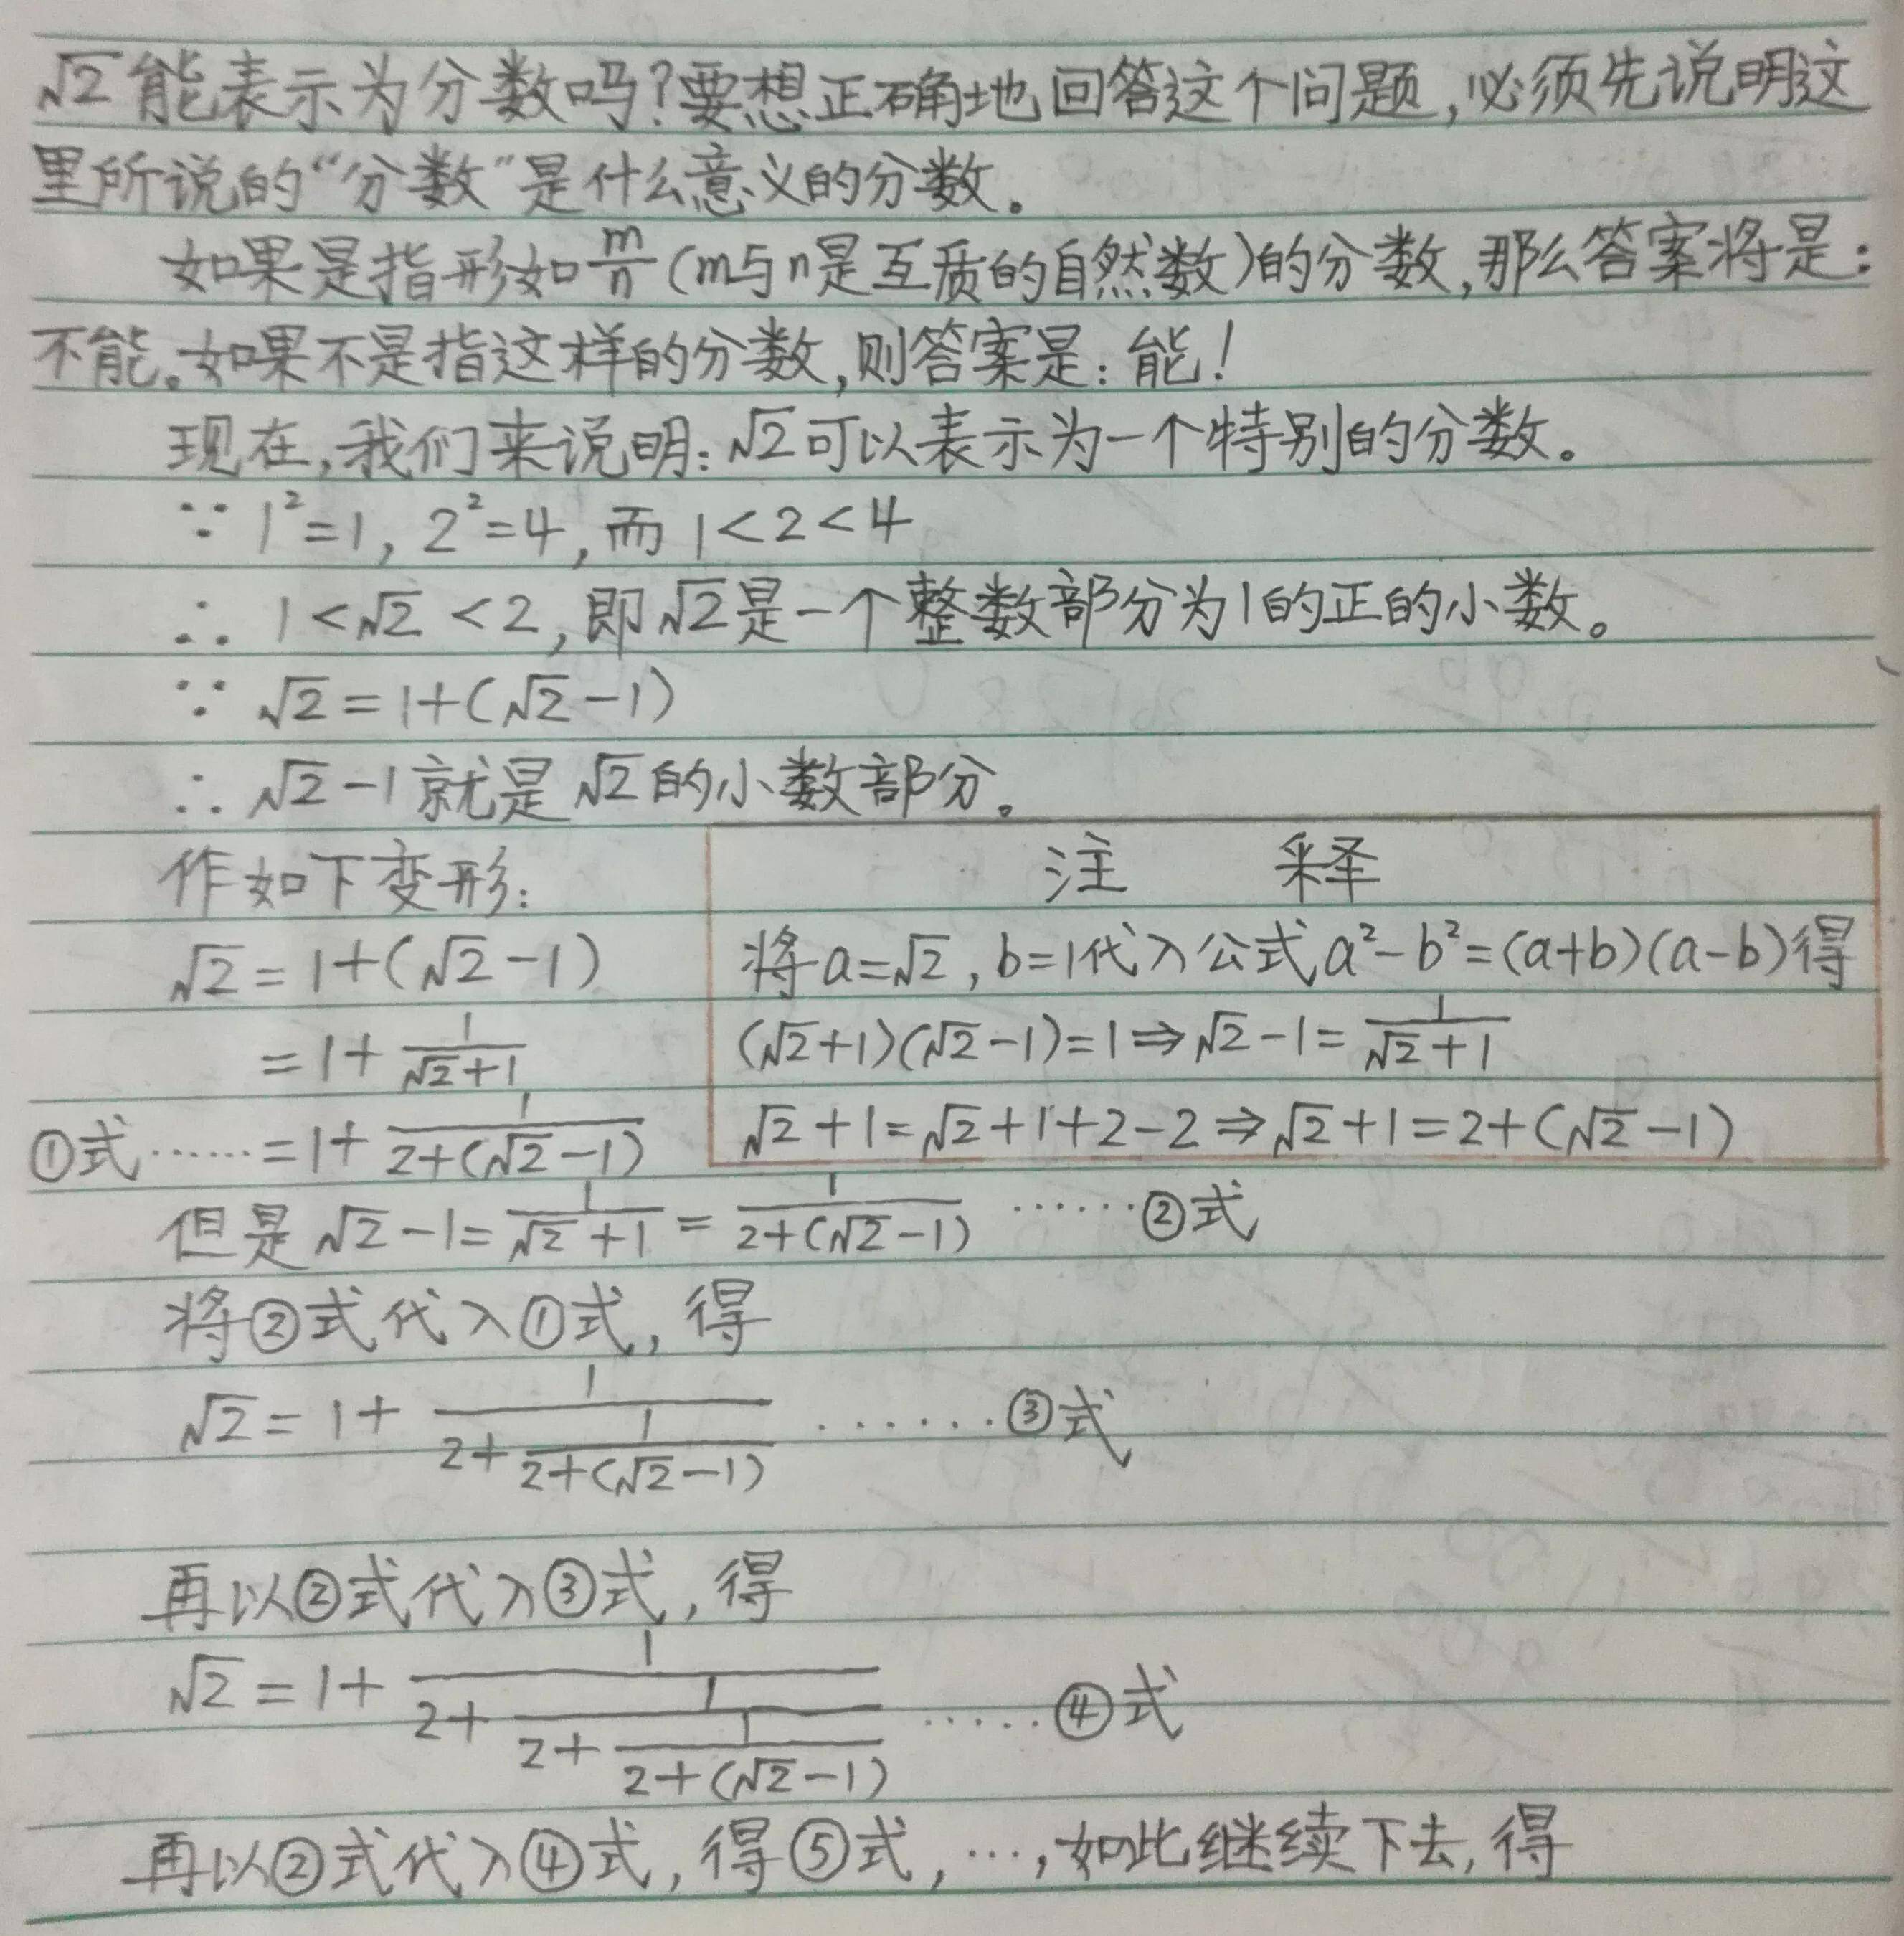 √2能表示为分数吗?要想正确地回答这个问题,必须先说明这
里所说的“分数”是什么意义的分数。
如果是指形如m/n(m与n是互质的自然数)的分数,那么答案将是:
不能。如果不是指这样的分数,则答案是:能!
现在,我们来说明:√2可以表示为一个特别的分数。
∵ 1²=1, 2²=4,而1<2<4
∴ 1<√2<2,即√2是一个整数部分为1的正的小数。
∵ √2=1+(√2-1)
∴ √2-1就是√2的小数部分。
作如下变形:
√2=1+(√2-1)
=1+1/(√2+1)
①式……=1+1/(2+(√2-1))
注 释
将a=√2,b=1代入公式a²-b²=(a+b)(a-b)得
(√2+1)(√2-1)=1⇒√2-1=1/(√2+1)
√2+1=√2+1+2-2⇒√2+1=2+(√2-1)
但是√2-1=1/(√2+1)=1/(2+(√2-1)) ……②式
将②式代入①式,得
√2=1+1/(2+1/(2+(√2-1))) ……③式
再以②式代入③式,得
√2=1+1/(2+1/(2+1/(2+(√2-1)))) ……④式
再以②式代入④式,得⑤式,…,如此继续下去,得